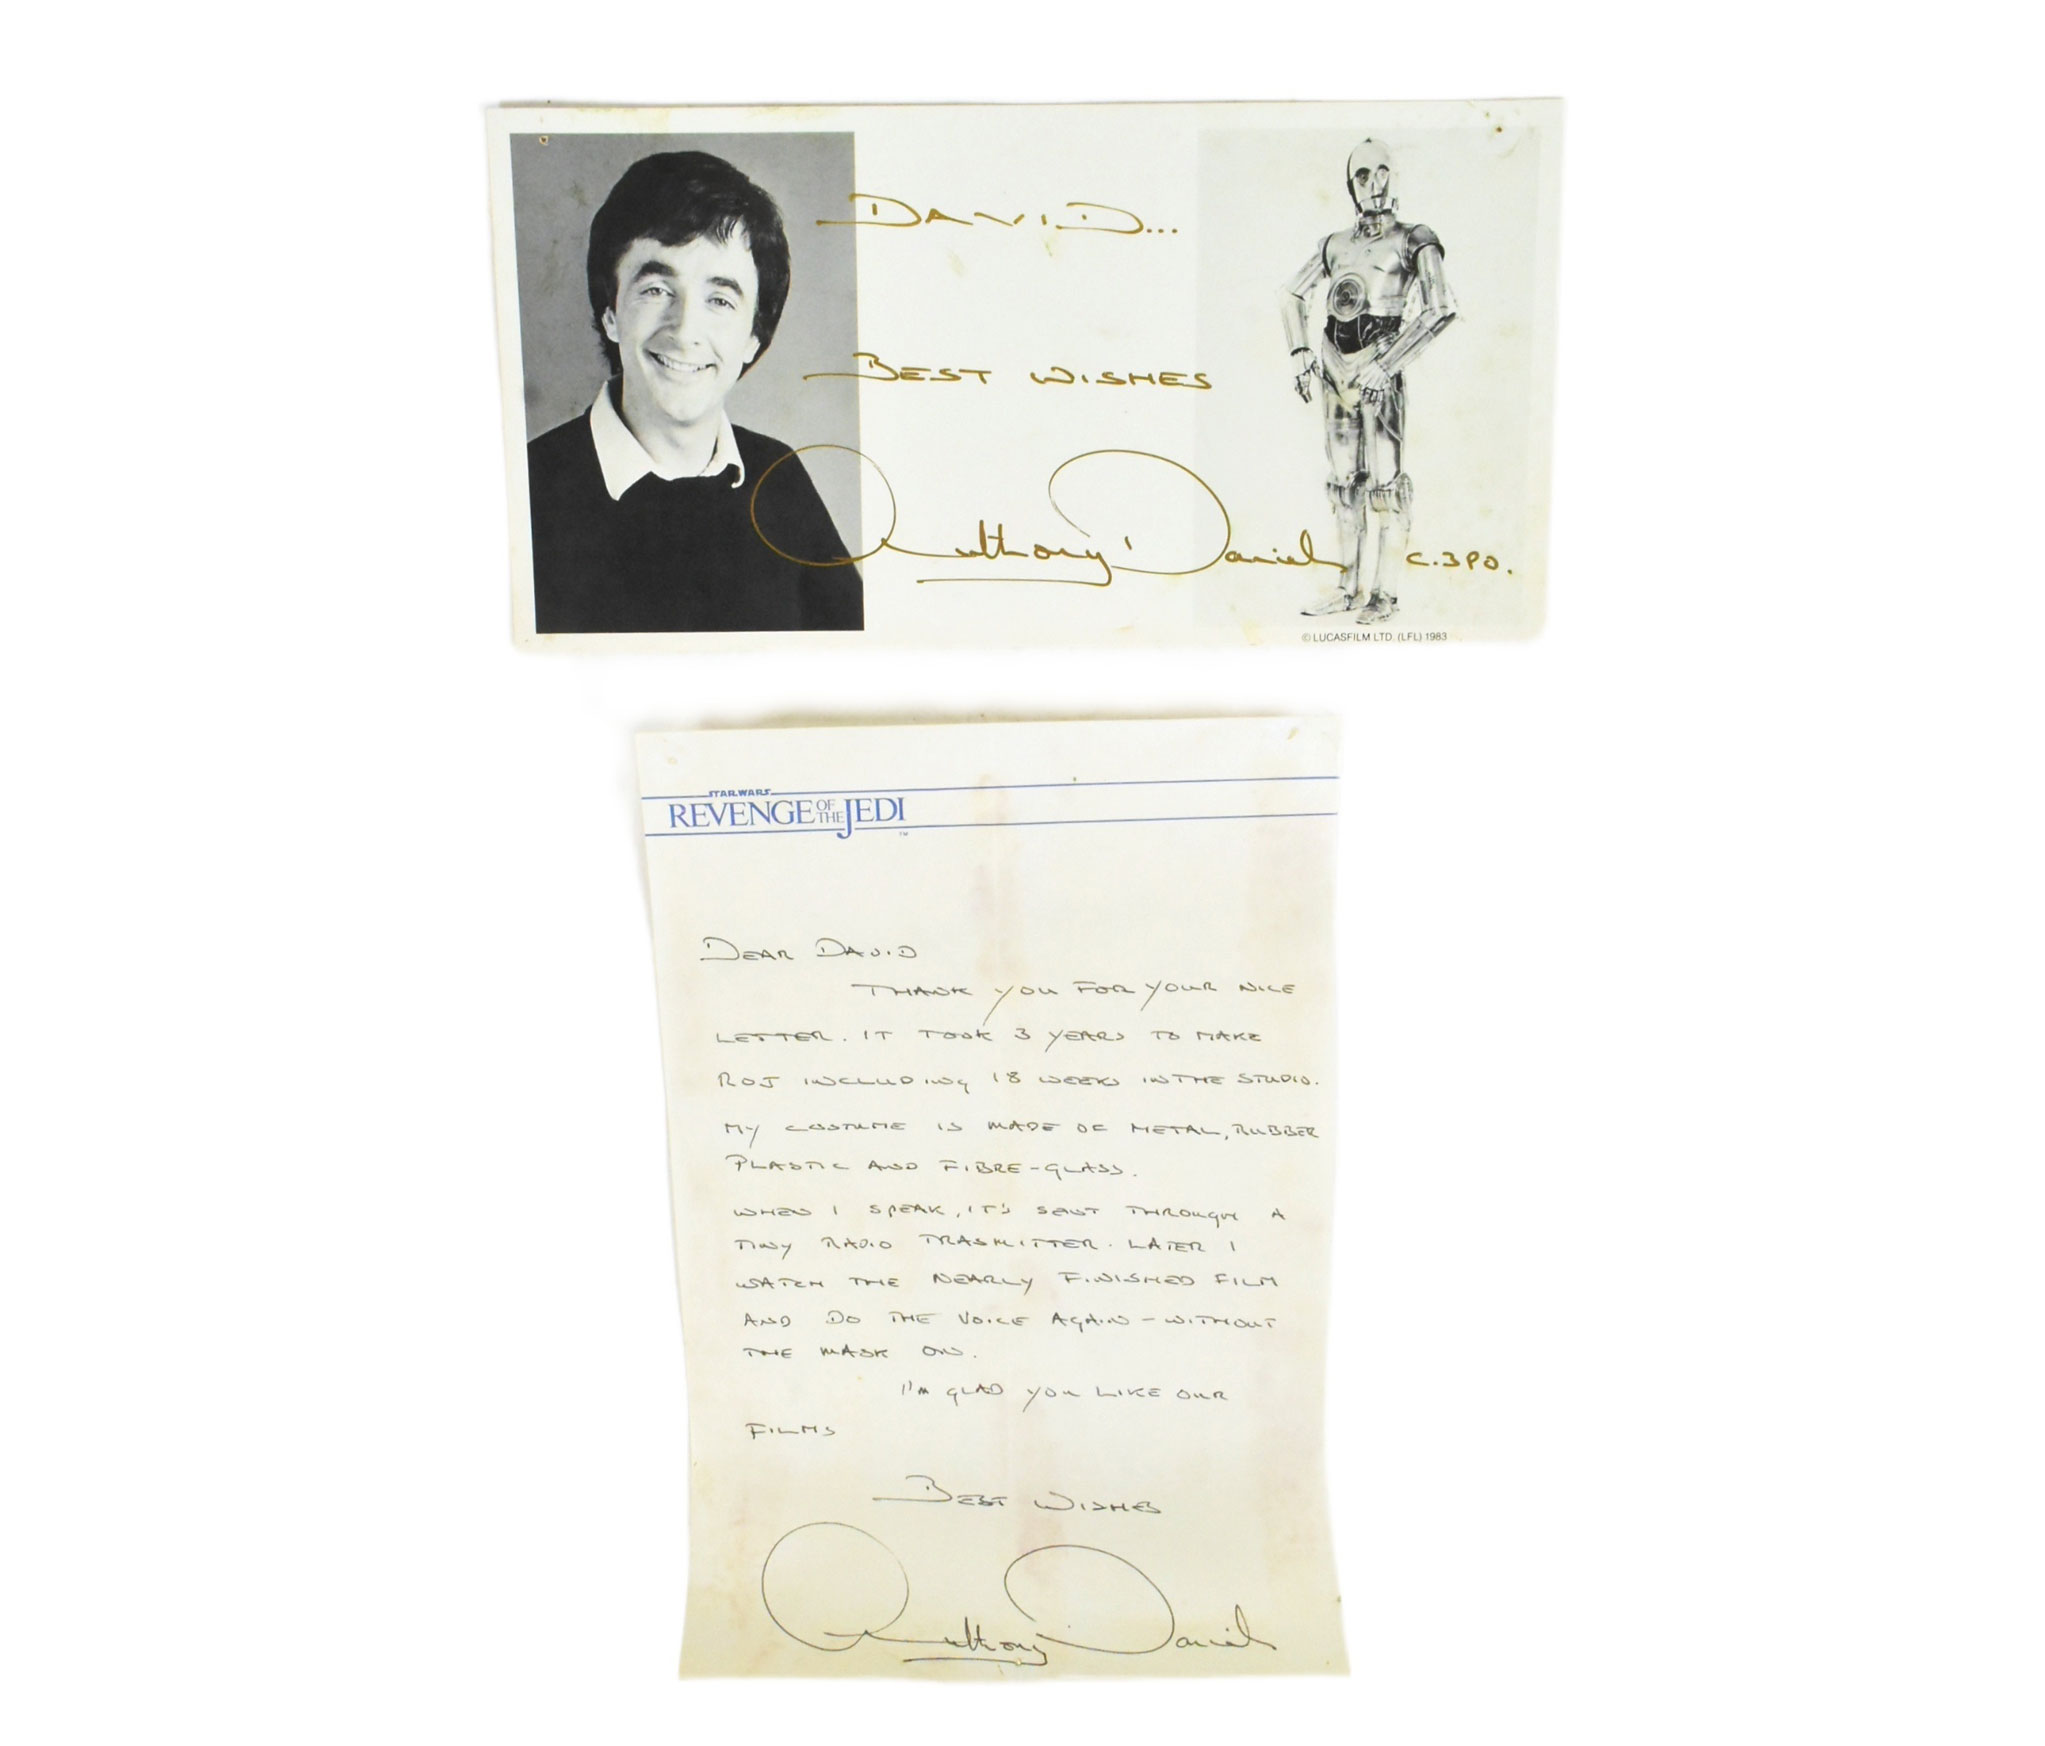 DAVID...
BEST WISHES
Anthony Daniels C.3PO.
© LUCASFILM LTD. (LFL) 1983
STAR WARS
REVENGE OF THE JEDI
TM
DEAR DAVID
THANK YOU FOR YOUR NICE
LETTER. IT TOOK 3 YEARS TO MAKE
ROJ INCLUDING 18 WEEKS IN THE STUDIO.
MY COSTUME IS MADE OF METAL, RUBBER
PLASTIC AND FIBRE-GLASS.
WHEN I SPEAK, IT'S SENT THROUGH A
TINY RADIO TRASMITTER. LATER I
WATCH THE NEARLY FINISHED FILM
AND DO THE VOICE AGAIN - WITHOUT
THE MASK ON.
I'M GLAD YOU LIKE OUR
FILMS
BEST WISHES
Anthony Daniels